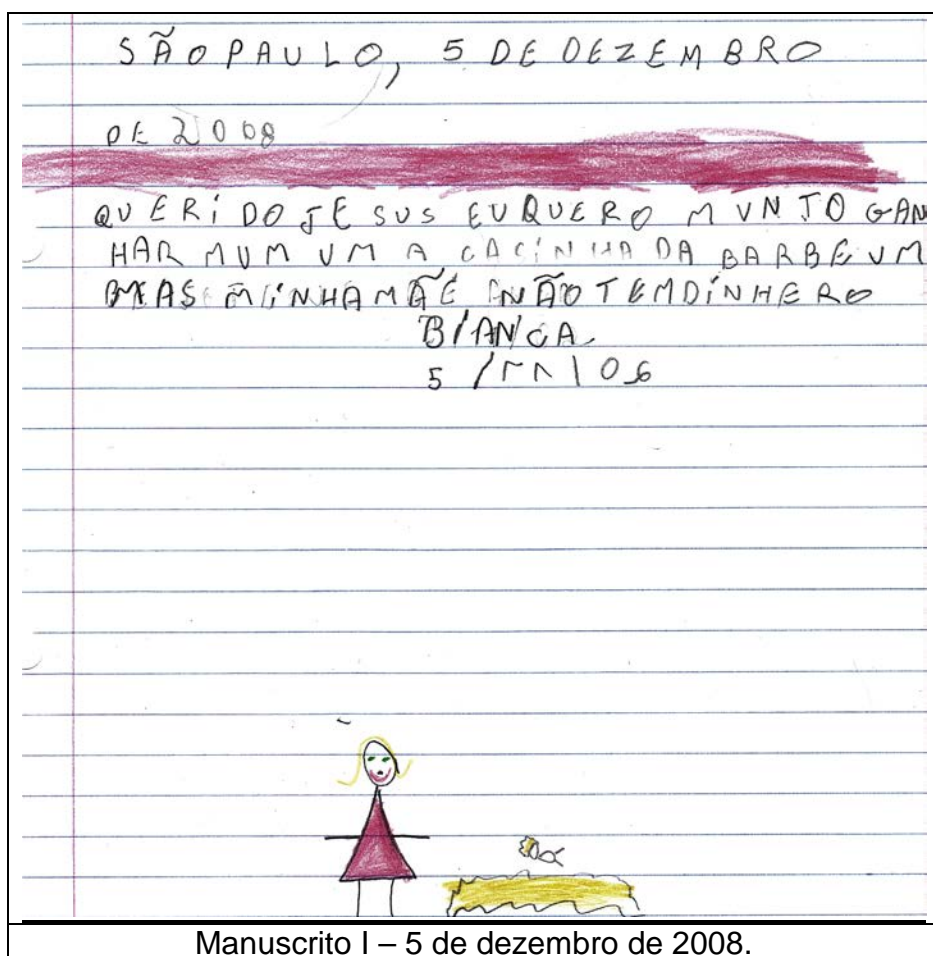 SÃO PAULO, 5 DE DEZEMBRO
DE 2008
QUERIDO JESUS EU QUERO MUNTO GAN
HAR MUM UM A CACINHA DA BARBE UM
MAS MINHA MÃE NÃO TEM DINHERO
BIANCA
5 / 06
Manuscrito I – 5 de dezembro de 2008.